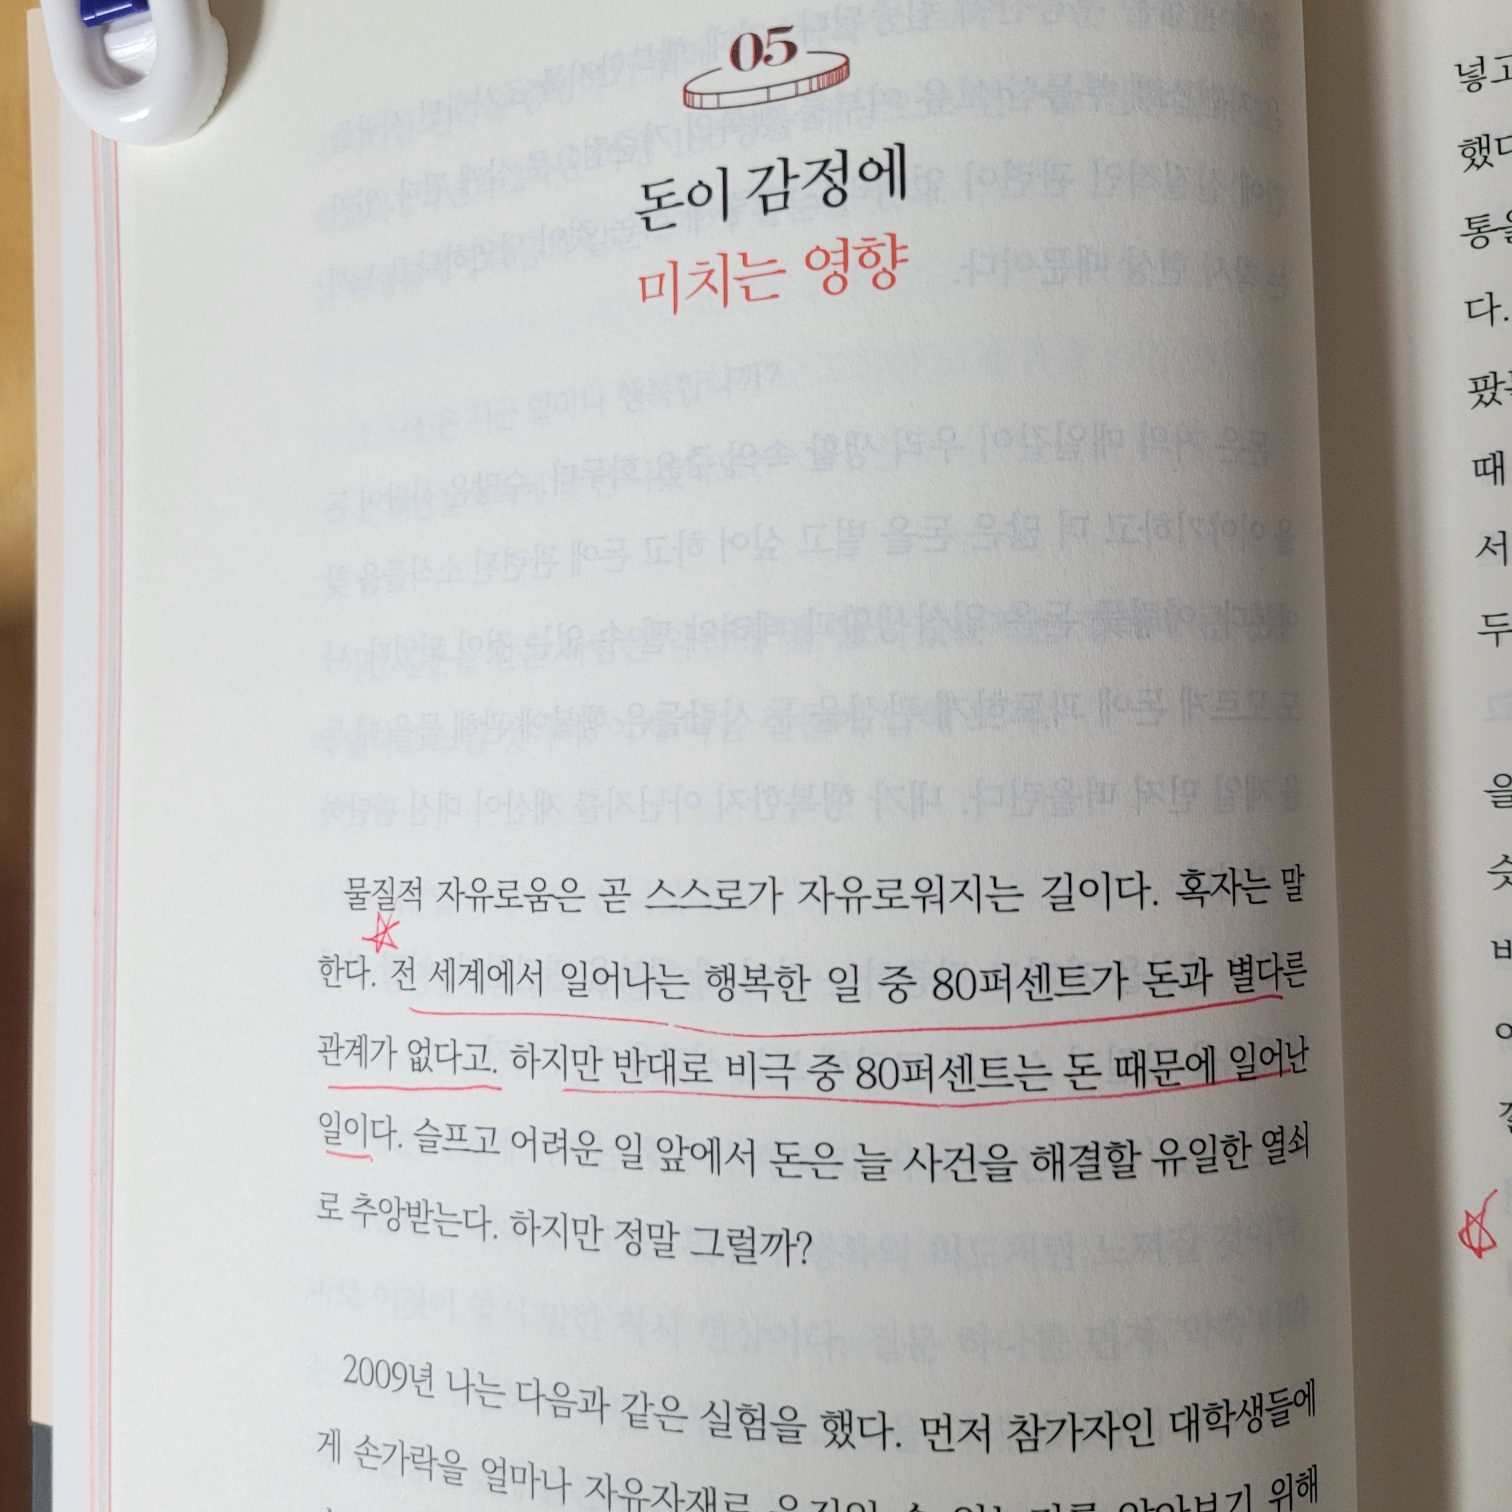 05
돈이 감정에
미치는 영향
물질적 자유로움은 곧 스스로가 자유로워지는 길이다. 혹자는 말
한다. 전 세계에서 일어나는 행복한 일 중 80퍼센트가 돈과 별다른
관계가 없다고. 하지만 반대로 비극 중 80퍼센트는 돈 때문에 일어난
일이다. 슬프고 어려운 일 앞에서 돈은 늘 사건을 해결할 유일한 열쇠
로 추앙받는다. 하지만 정말 그럴까?
2009년 나는 다음과 같은 실험을 했다. 먼저 참가자인 대학생들에
게 손가락을 얼마나 자유자재로 움직일 수 있는지를 알아보기 위해
넣고
했다
통을
다.
때
서
두
그
을